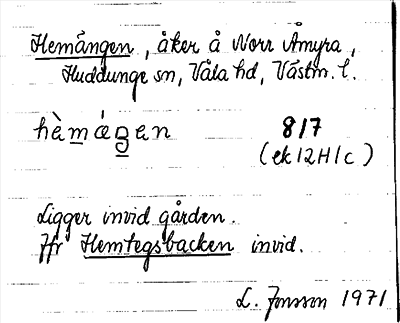 Hemängen, åker å Norr Åmyra,
Huddunge sn, Våla hd, Västm. l.
hèmáꞬen 8/7
(ek 12H1c)
Ligger invid gården.
Jfr Hemtegsbacken invid.
L. Jonsson 1971